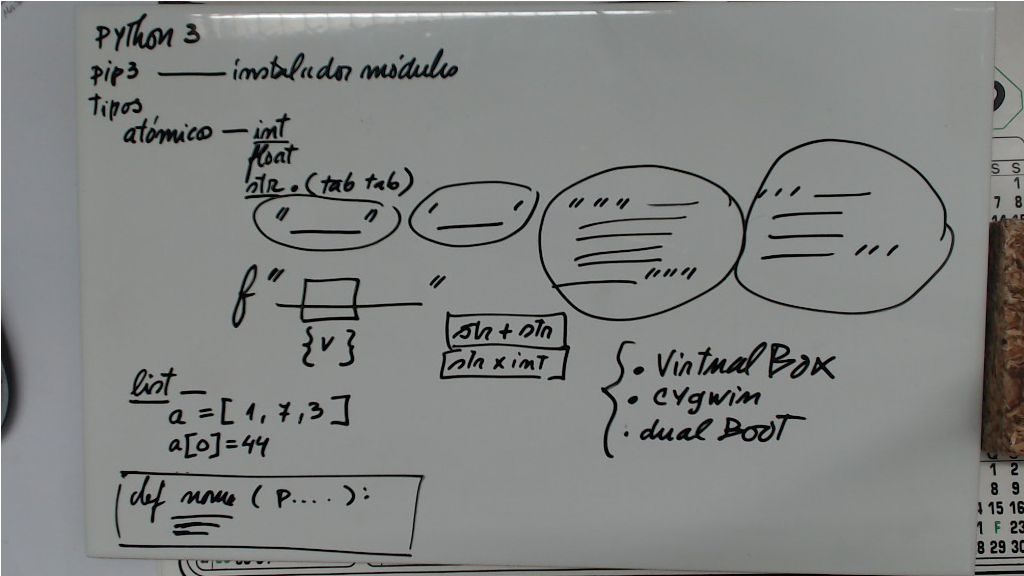 Python 3
pip3 —— instalador módulos
tipos
atómico — int
float
str . (tab tab)
" __ " ' __ ' """ __ """ ''' __ '''
f" __ "
{v}
str + str
str x int
list _
a = [1, 7, 3]
a[0] = 44
def nome (p....):
{ . Virtual Box
. cygwin
. dual Boot
S S
1
7 8
14 15
1 2
8 9
15 16
F 23
8 29 30